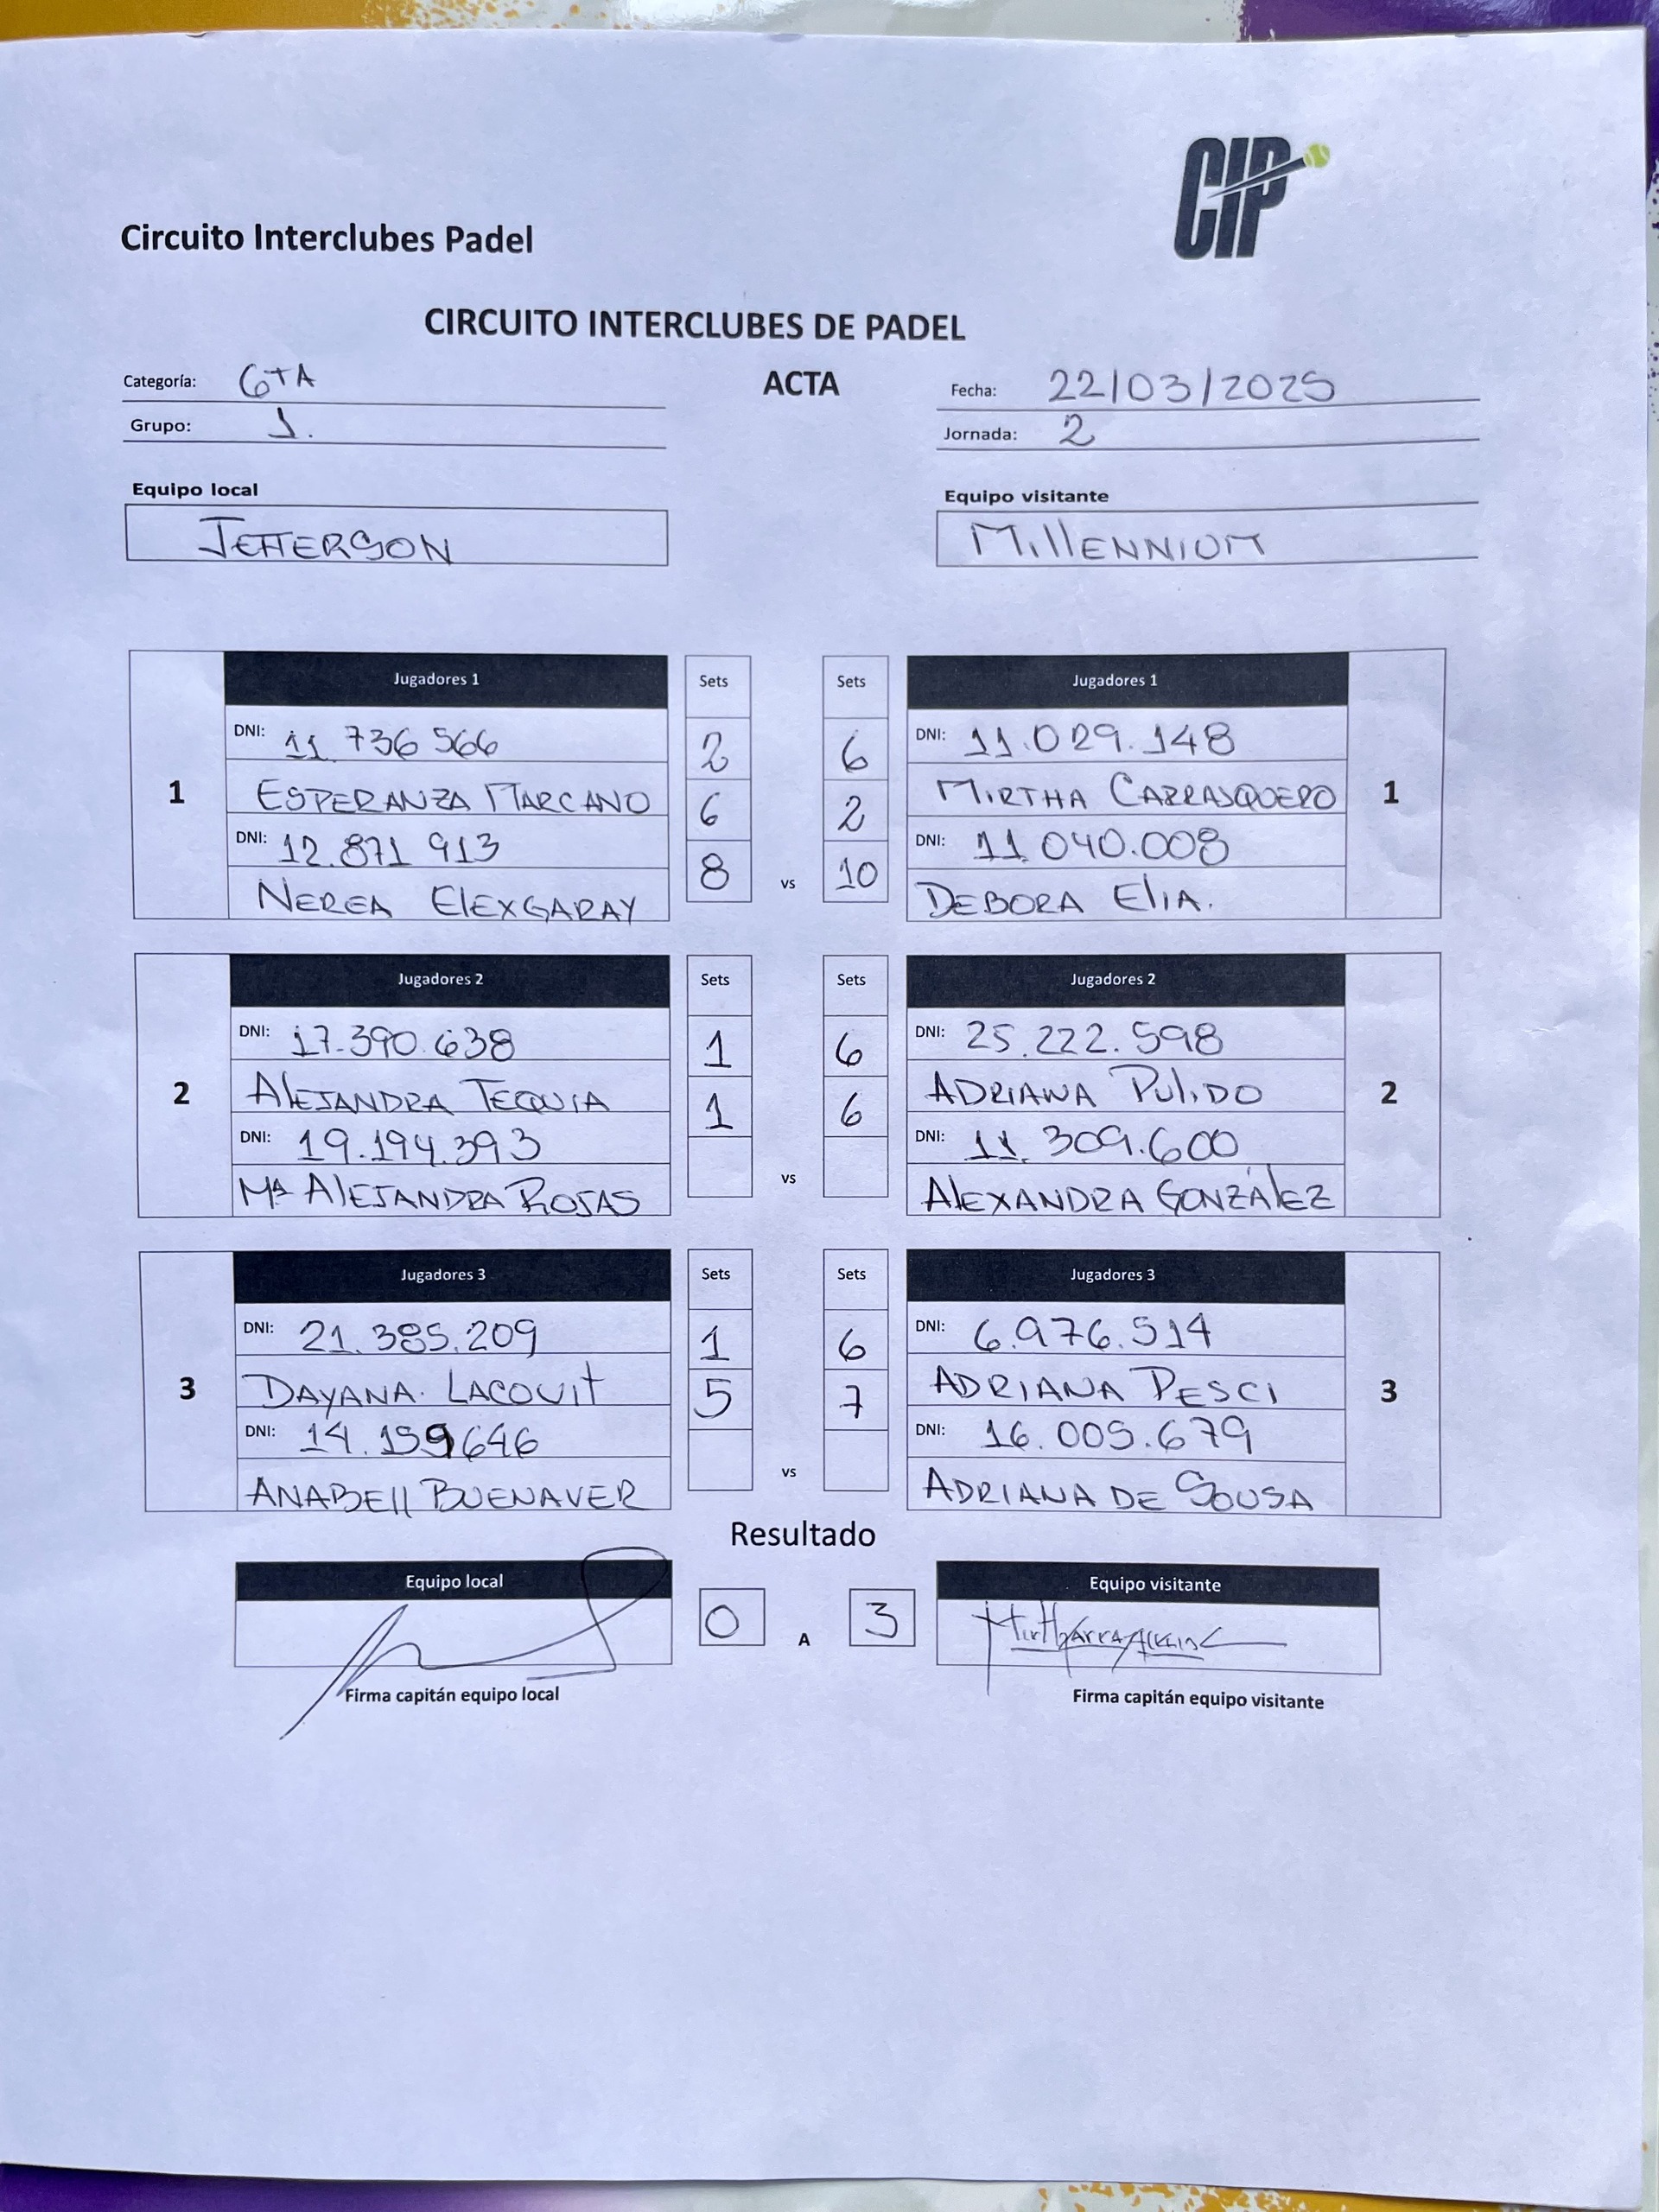 CIP
Circuito Interclubes Padel
CIRCUITO INTERCLUBES DE PADEL
Categoría: 6TA
ACTA
Fecha: 22/03/2025
Grupo: 1.
Jornada: 2
Equipo local
Equipo visitante
JEFFERSON
MIllENNIUM
Jugadores 1 Sets Sets Jugadores 1
DNI: 11.736 566 2 6 DNI: 11.029.148
1 ESPERANZA MARCANO 6 2 MIRTHA CARRASQUERO 1
DNI: 12.871 913 8 vs 10 DNI: 11.040.008
NEREA ElEXGARAY DEBORA ElIA.
Jugadores 2 Sets Sets Jugadores 2
DNI: 17.390.638 1 6 DNI: 25.222.598
2 AlEJANDRA TEQUIA 1 6 ADRIANA PUlIDO 2
DNI: 19.194.393 vs DNI: 11.309.600
Mª AlEJANDRA ROJAS AlEXANDRA GONZÁlEZ
Jugadores 3 Sets Sets Jugadores 3
DNI: 21.385.209 1 6 DNI: 6.976.514
3 DAYANA. LACOUIt 5 7 ADRIANA PESCI 3
DNI: 14.159646 vs DNI: 16.005.679
ANABEll BUENAVER ADRIANA DE SOUSA
Resultado
Equipo local 0 A 3 Equipo visitante
Firma capitán equipo local
Firma capitán equipo visitante